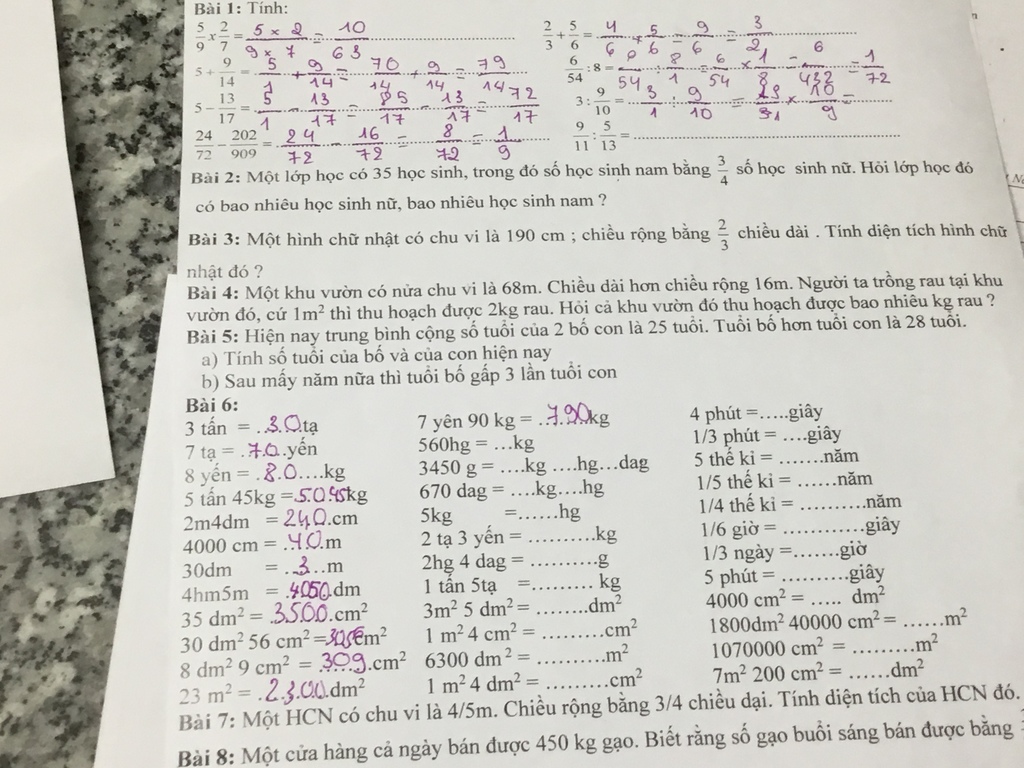 Bài 1: Tính:
5/9 x 2/7 = 5 x 2 / 9 x 7 = 10/63
2/3 + 5/6 = 4/6 + 5/6 = 9/6 = 3/2
5 + 9/14 = 5/1 + 9/14 = 70/14 + 9/14 = 79/14
6/54 : 8 = 6/54 : 8/1 = 6/54 x 1/8 = 6/432 = 1/72
5 - 13/17 = 5/1 - 13/17 = 85/17 - 13/17 = 72/17
3 : 9/10 = 3/1 : 9/10 = x 10/9 =
24/72 - 202/909 = 24/72 - 16/72 = 8/72 = 1/9
9/11 : 5/13 =
Bài 2: Một lớp học có 35 học sinh, trong đó số học sinh nam bằng 3/4 số học sinh nữ. Hỏi lớp học đó
có bao nhiêu học sinh nữ, bao nhiêu học sinh nam ?
Bài 3: Một hình chữ nhật có chu vi là 190 cm ; chiều rộng bằng 2/3 chiều dài . Tính diện tích hình chữ
nhật đó ?
Bài 4: Một khu vườn có nửa chu vi là 68m. Chiều dài hơn chiều rộng 16m. Người ta trồng rau tại khu
vườn đó, cứ 1m² thì thu hoạch được 2kg rau. Hỏi cả khu vườn đó thu hoạch được bao nhiêu kg rau ?
Bài 5: Hiện nay trung bình cộng số tuổi của 2 bố con là 25 tuổi. Tuổi bố hơn tuổi con là 28 tuổi.
a) Tính số tuổi của bố và của con hiện nay
b) Sau mấy năm nữa thì tuổi bố gấp 3 lần tuổi con
Bài 6:
3 tấn = .30.tạ
7 tạ = .70.yến
8 yến = .80....kg
5 tấn 45kg =5045kg
2m4dm = 240.cm
4000 cm = .40.m
30dm = .3...m
4hm5m = .4050.dm
35 dm² = 3500.cm²
30 dm² 56 cm² =3056cm²
8 dm² 9 cm² = 309.cm²
23 m² = .2300.dm²
7 yên 90 kg = .790kg
560hg = ...kg
3450 g = ....kg ....hg...dag
670 dag = ....kg....hg
5kg =......hg
2 tạ 3 yến = ..........kg
2hg 4 dag = ..........g
1 tấn 5tạ =.......... kg
3m² 5 dm² = ........dm²
1 m² 4 cm² = .........cm²
6300 dm ² = ..........m²
1 m² 4 dm² = .........cm²
4 phút =.....giây
1/3 phút = ....giây
5 thế kỉ = .......năm
1/5 thế kỉ = ......năm
1/4 thế kỉ = ..........năm
1/6 giờ = ............giây
1/3 ngày =.......giờ
5 phút = ..........giây
4000 cm² = ..... dm²
1800dm² 40000 cm² = ......m²
1070000 cm² = .........m²
7m² 200 cm² = ......dm²
Bài 7: Một HCN có chu vi là 4/5m. Chiều rộng bằng 3/4 chiều dại. Tính diện tích của HCN đó.
Bài 8: Một cửa hàng cả ngày bán được 450 kg gạo. Biết rằng số gạo buổi sáng bán được bằng